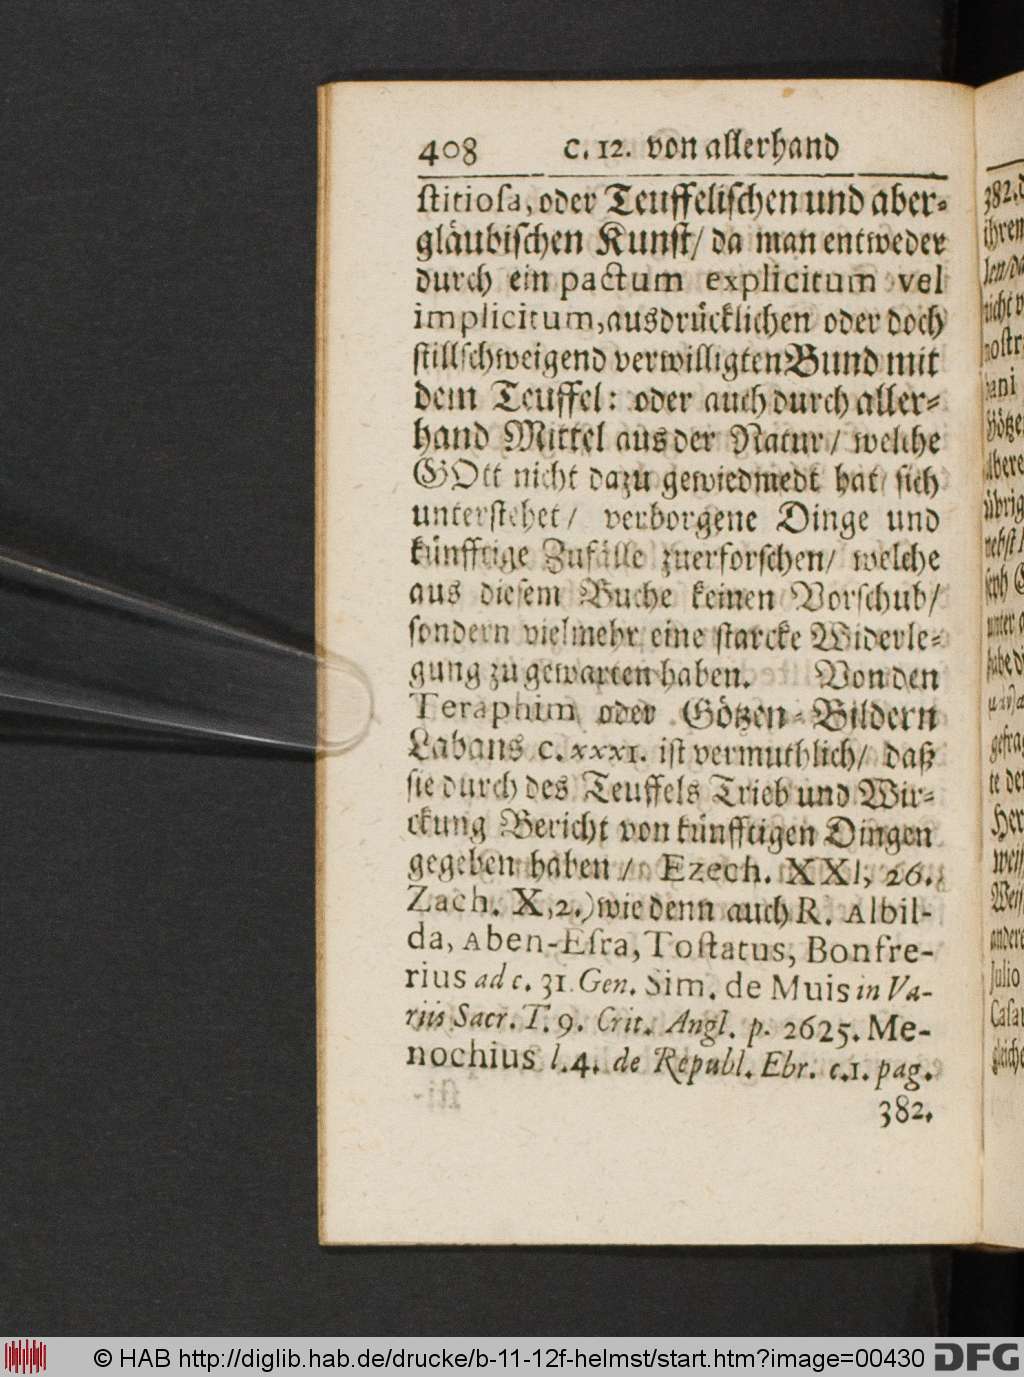 408 C. 12. von allerhand
ſtitioſa, oder Teuffeliſchen und aber-
gläubiſchen Kunſt/ da man entweder
durch ein pactum explicitum vel
implicitum, ausdrücklichen oder doch
ſtillſchweigend verwilligten Bund mit
dem Teuffel: oder auch durch aller-
hand Mittel aus der Natur/ welche
GOtt nicht dazu gewiedmedt hat/ ſich
unterſtehet/ verborgene Dinge und
künfftige Zufälle zuerforſchen/ welche
aus dieſem Buche keinen Vorſchub/
ſondern vielmehr eine ſtarcke Widerle-
gung zu gewarten haben. Von den
Teraphim oder Götzen-Bildern
Labans C. XXXI. iſt vermuthlich/ daß
ſie durch des Teuffels Trieb und Wir-
ckung Bericht von künfftigen Dingen
gegeben haben/ Ezech. XXI, 26.
Zach. X, 2.) wie denn auch R. Albil-
da, Aben-Eſra, Toſtatus, Bonfre-
rius ad c. 31. Gen. Sim. de Muis in Va-
riis Sacr. T. 9. Crit. Angl. p. 2625. Me-
nochius l. 4. de Republ. Ebr. c. 1. pag.
382.
382.
ihren
nicht
Götzen
übrig
unter
te
Julio
© HAB http://diglib.hab.de/drucke/b-11-12f-helmst/start.htm?image=00430 DFG